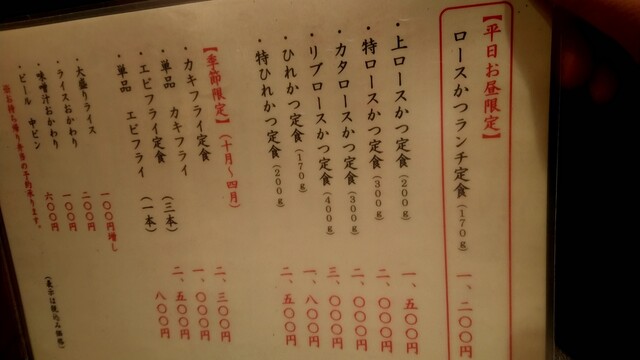 【平日お昼限定】
ロースかつランチ定食(170g) 一、二〇〇円
・上ロースかつ定食(200g) 一、五〇〇円
・特ロースかつ定食(300g) 二、〇〇〇円
・カタロースかつ定食(300g) 二、〇〇〇円
・リブロースかつ定食(400g) 三、〇〇〇円
・ひれかつ定食(170g) 一、八〇〇円
・特ひれかつ定食(200g) 二、五〇〇円
【季節限定】(十月~四月)
・カキフライ定食 二、三〇〇円
・単品 カキフライ (三本) 一、〇〇〇円
・エビフライ定食 二、五〇〇円
・単品 エビフライ (一本) 八〇〇円
・大盛りライス 一〇〇円増し
・ライスおかわり 二〇〇円
・味噌汁おかわり 一〇〇円
・ビール 中ビン 六〇〇円
※お持ち帰り弁当の予約承ります。
(表示は税込み価格)